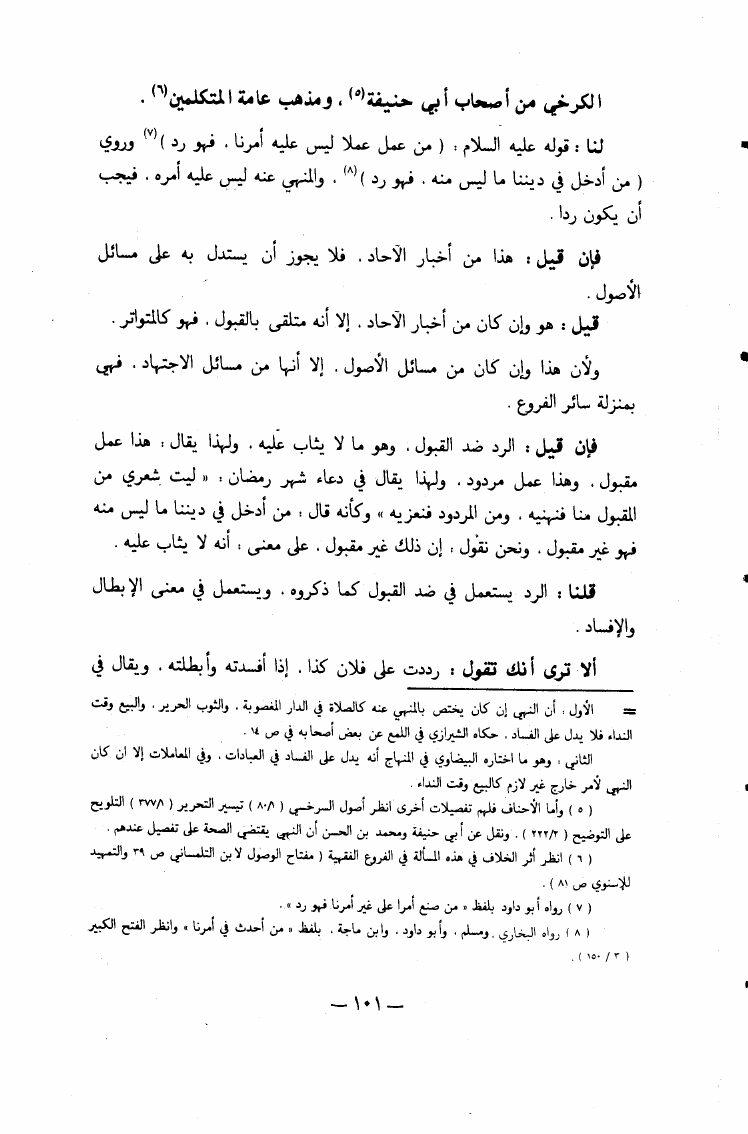 الكرخي من أصحاب أبي حنيفة(٥) ، ومذهب عامة المتكلمين(٦) .
لنا : قوله عليه السلام : ( من عمل عملا ليس عليه أمرنا ، فهو رد )(٧) وروي
( من أدخل في ديننا ما ليس منه ، فهو رد )(٨) ، والمنهي عنه ليس عليه أمره ، فيجب
أن يكون ردا .
فإن قيل : هذا من أخبار الآحاد ، فلا يجوز أن يستدل به على مسائل
الأصول .
قيل : هو وإن كان من أخبار الآحاد ، إلا أنه متلقى بالقبول ، فهو كالمتواتر .
ولأن هذا وإن كان من مسائل الأصول ، إلا أنها من مسائل الاجتهاد ، فهي
بمنزلة سائر الفروع .
فإن قيل : الرد ضد القبول ، وهو ما لا يثاب عليه ، ولهذا يقال : هذا عمل
مقبول ، وهذا عمل مردود ، ولهذا يقال في دعاء شهر رمضان : « ليت شعري من
المقبول منا فنهنيه ، ومن المردود فنعزيه » وكأنه قال : من أدخل في ديننا ما ليس منه
فهو غير مقبول ، ونحن نقول : إن ذلك غير مقبول ، على معنى : أنه لا يثاب عليه .
قلنا : الرد يستعمل في ضد القبول كما ذكروه ، ويستعمل في معنى الإبطال
والإفساد .
ألا ترى أنك تقول : رددت على فلان كذا ، إذا أفسدته وأبطلته ، ويقال في
= الأول : أن النهي إن كان يختص بالمنهي عنه كالصلاة في الدار المغصوبة ، والثوب الحرير ، والبيع وقت
النداء فلا يدل على الفساد ، حكاه الشيرازي في اللمع عن بعض أصحابه في ص ١٤ .
الثاني : وهو ما اختاره البيضاوي في المنهاج أنه يدل على الفساد في العبادات ، وفي المعاملات إلا ان كان
النهي لأمر خارج غير لازم كالبيع وقت النداء .
( ٥ ) وأما الأحناف فلهم تفصيلات أخرى انظر أصول السرخسي ( ٨٠/١ ) تيسير التحرير ( ٣٧٧/١ ) التلويح
على التوضيح ( ٢٢٢/٢ ) . ونقل عن أبي حنيفة ومحمد بن الحسن أن النهي يقتضي الصحة على تفصيل عندهم .
( ٦ ) انظر أثر الخلاف في هذه المسألة في الفروع الفقهية ( مفتاح الوصول لابن التلمساني ص ٣٩ والتمهيد
للإسنوي ص ٨١ ) .
( ٧ ) رواه أبو داود بلفظ « من صنع أمرا على غير أمرنا فهو رد » .
( ٨ ) رواه البخاري ، ومسلم ، وأبو داود ، وابن ماجة ، بلفظ « من أحدث في أمرنا » وانظر الفتح الكبير
( ٣ / ١٥٠ ) .
— ١٠١ —